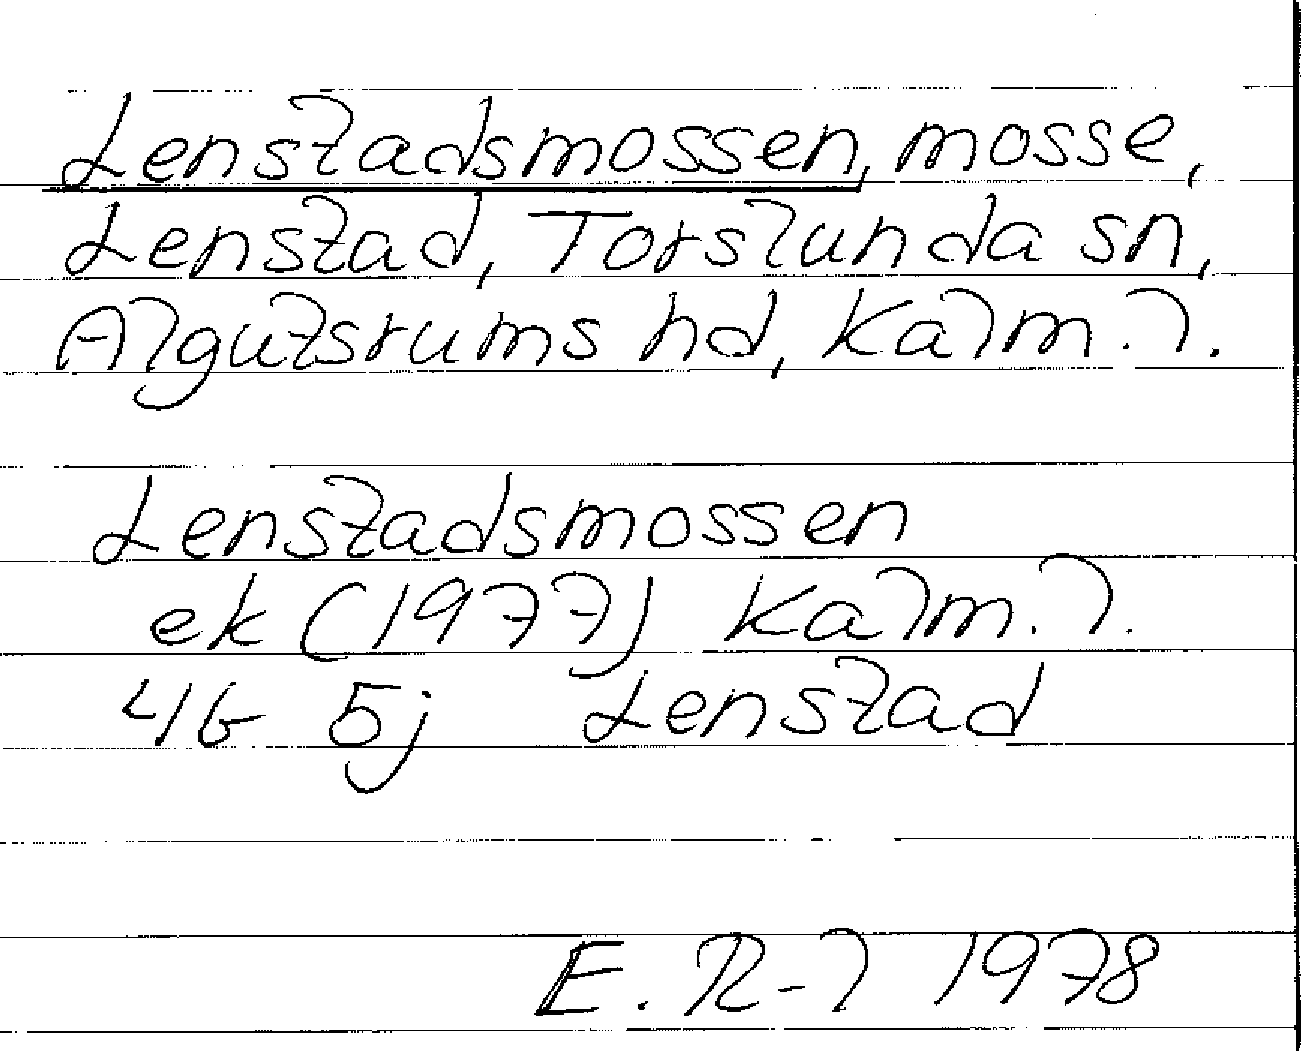 Lenstadsmossen, mosse,
Lenstad, Torslunda sn,
Algutsrums hd, Kalm. l.
Lenstadsmossen
ek (1977) Kalm. l.
4G 5j Lenstad
E. R-l 1978